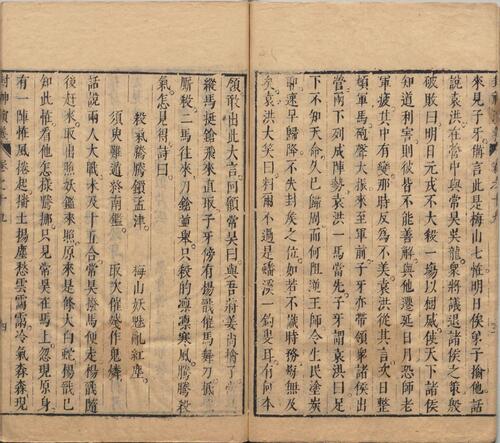 來見子牙備言此是梅山七怪明日俟弟子擒他話
說袁洪在營中與常昊吳龍衆將議退諸侯之策殷
破敗曰明日元戎不大殺一場以樹威使天下諸侯
知道利害則彼皆不能善解與他遷延日月恐師老
軍疲其中有變那時反爲不美袁洪從其言次日整
頓軍馬砲聲大振來至軍前子牙亦帶領衆諸侯出
營兩下列成陣勢袁洪一馬當先子牙謂袁洪曰足
下不知天命久已歸周而何阻逆王師令生民塗炭
耶速早歸降不失封矦之位如若不識時務悔無及
矣袁洪大笑曰爾不過是磻溪一釣叟耳有何本
領敢出此大言回顧常昊曰與吾將姜尚擒了常
縱馬挺鎗飛來直取子牙傍有楊戩催馬舞刀抵
厮殺二馬往來刀鎗並舉只殺的凛凛寒風騰騰殺
氣怎見得詩曰
殺氣騰騰鎖孟津　梅山妖魅亂紅塵
須臾難遁終南鑑　取次摧殘作鬼燐
話說兩人大戰未及十五合常昊撥馬便走楊戩隨
後赶來取出照妖鑑來照原來是條大白蛇楊戩已
知此怪看他怎樣騰挪只見常昊在馬上忽現原身
有一陣怪風捲起播土揚塵愁雲靄靄冷氣森森現
封神演義　卷之十九　四